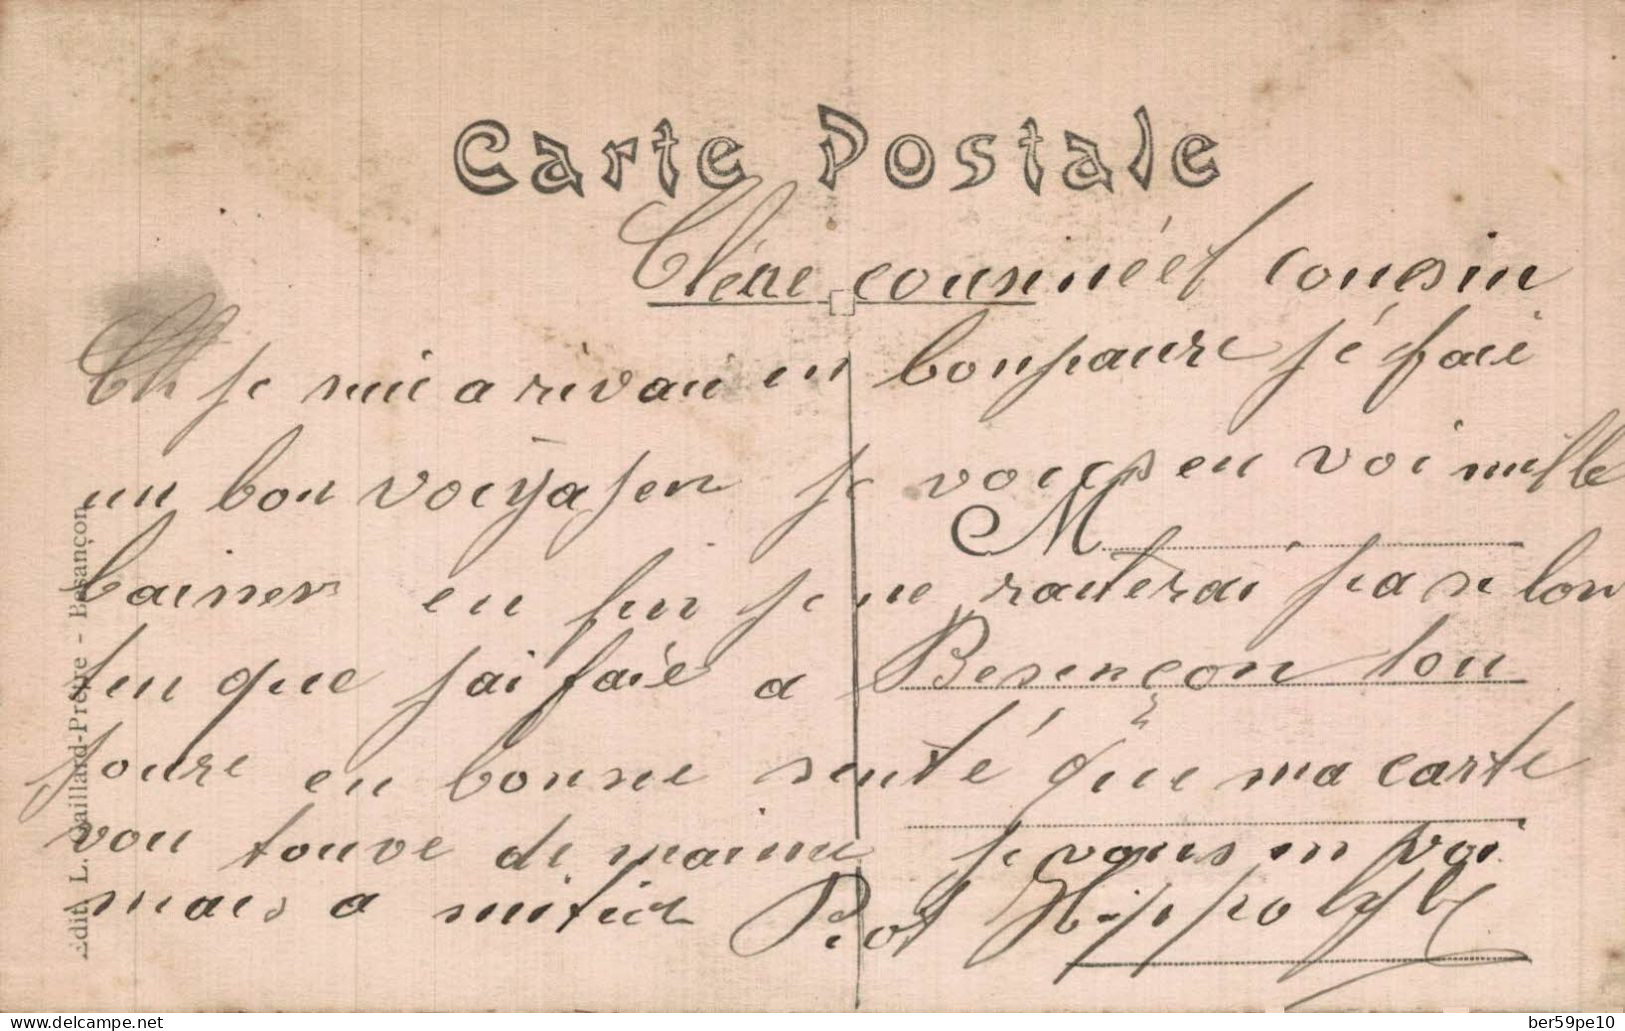 Carte Postale
Clére cousinéet cousin
je sui a rivai en bonpaure jé faié
un bon voiyajen je vous en voi mille
baiser en fin je ne rauterai pa se lon
ten que jai faié a Besençon tou
joure en bonne senté que ma carte
vou touve de maime je vous en voi
mais a mitiéz Prot Hippolyte
M
Édit. L. Gaillard-Prêtre - Besançon
delcampe.net
ber59pe10